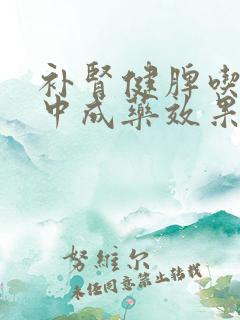 补肾健脾喫
中成藥效果
努維尔
未任同意禁止转载